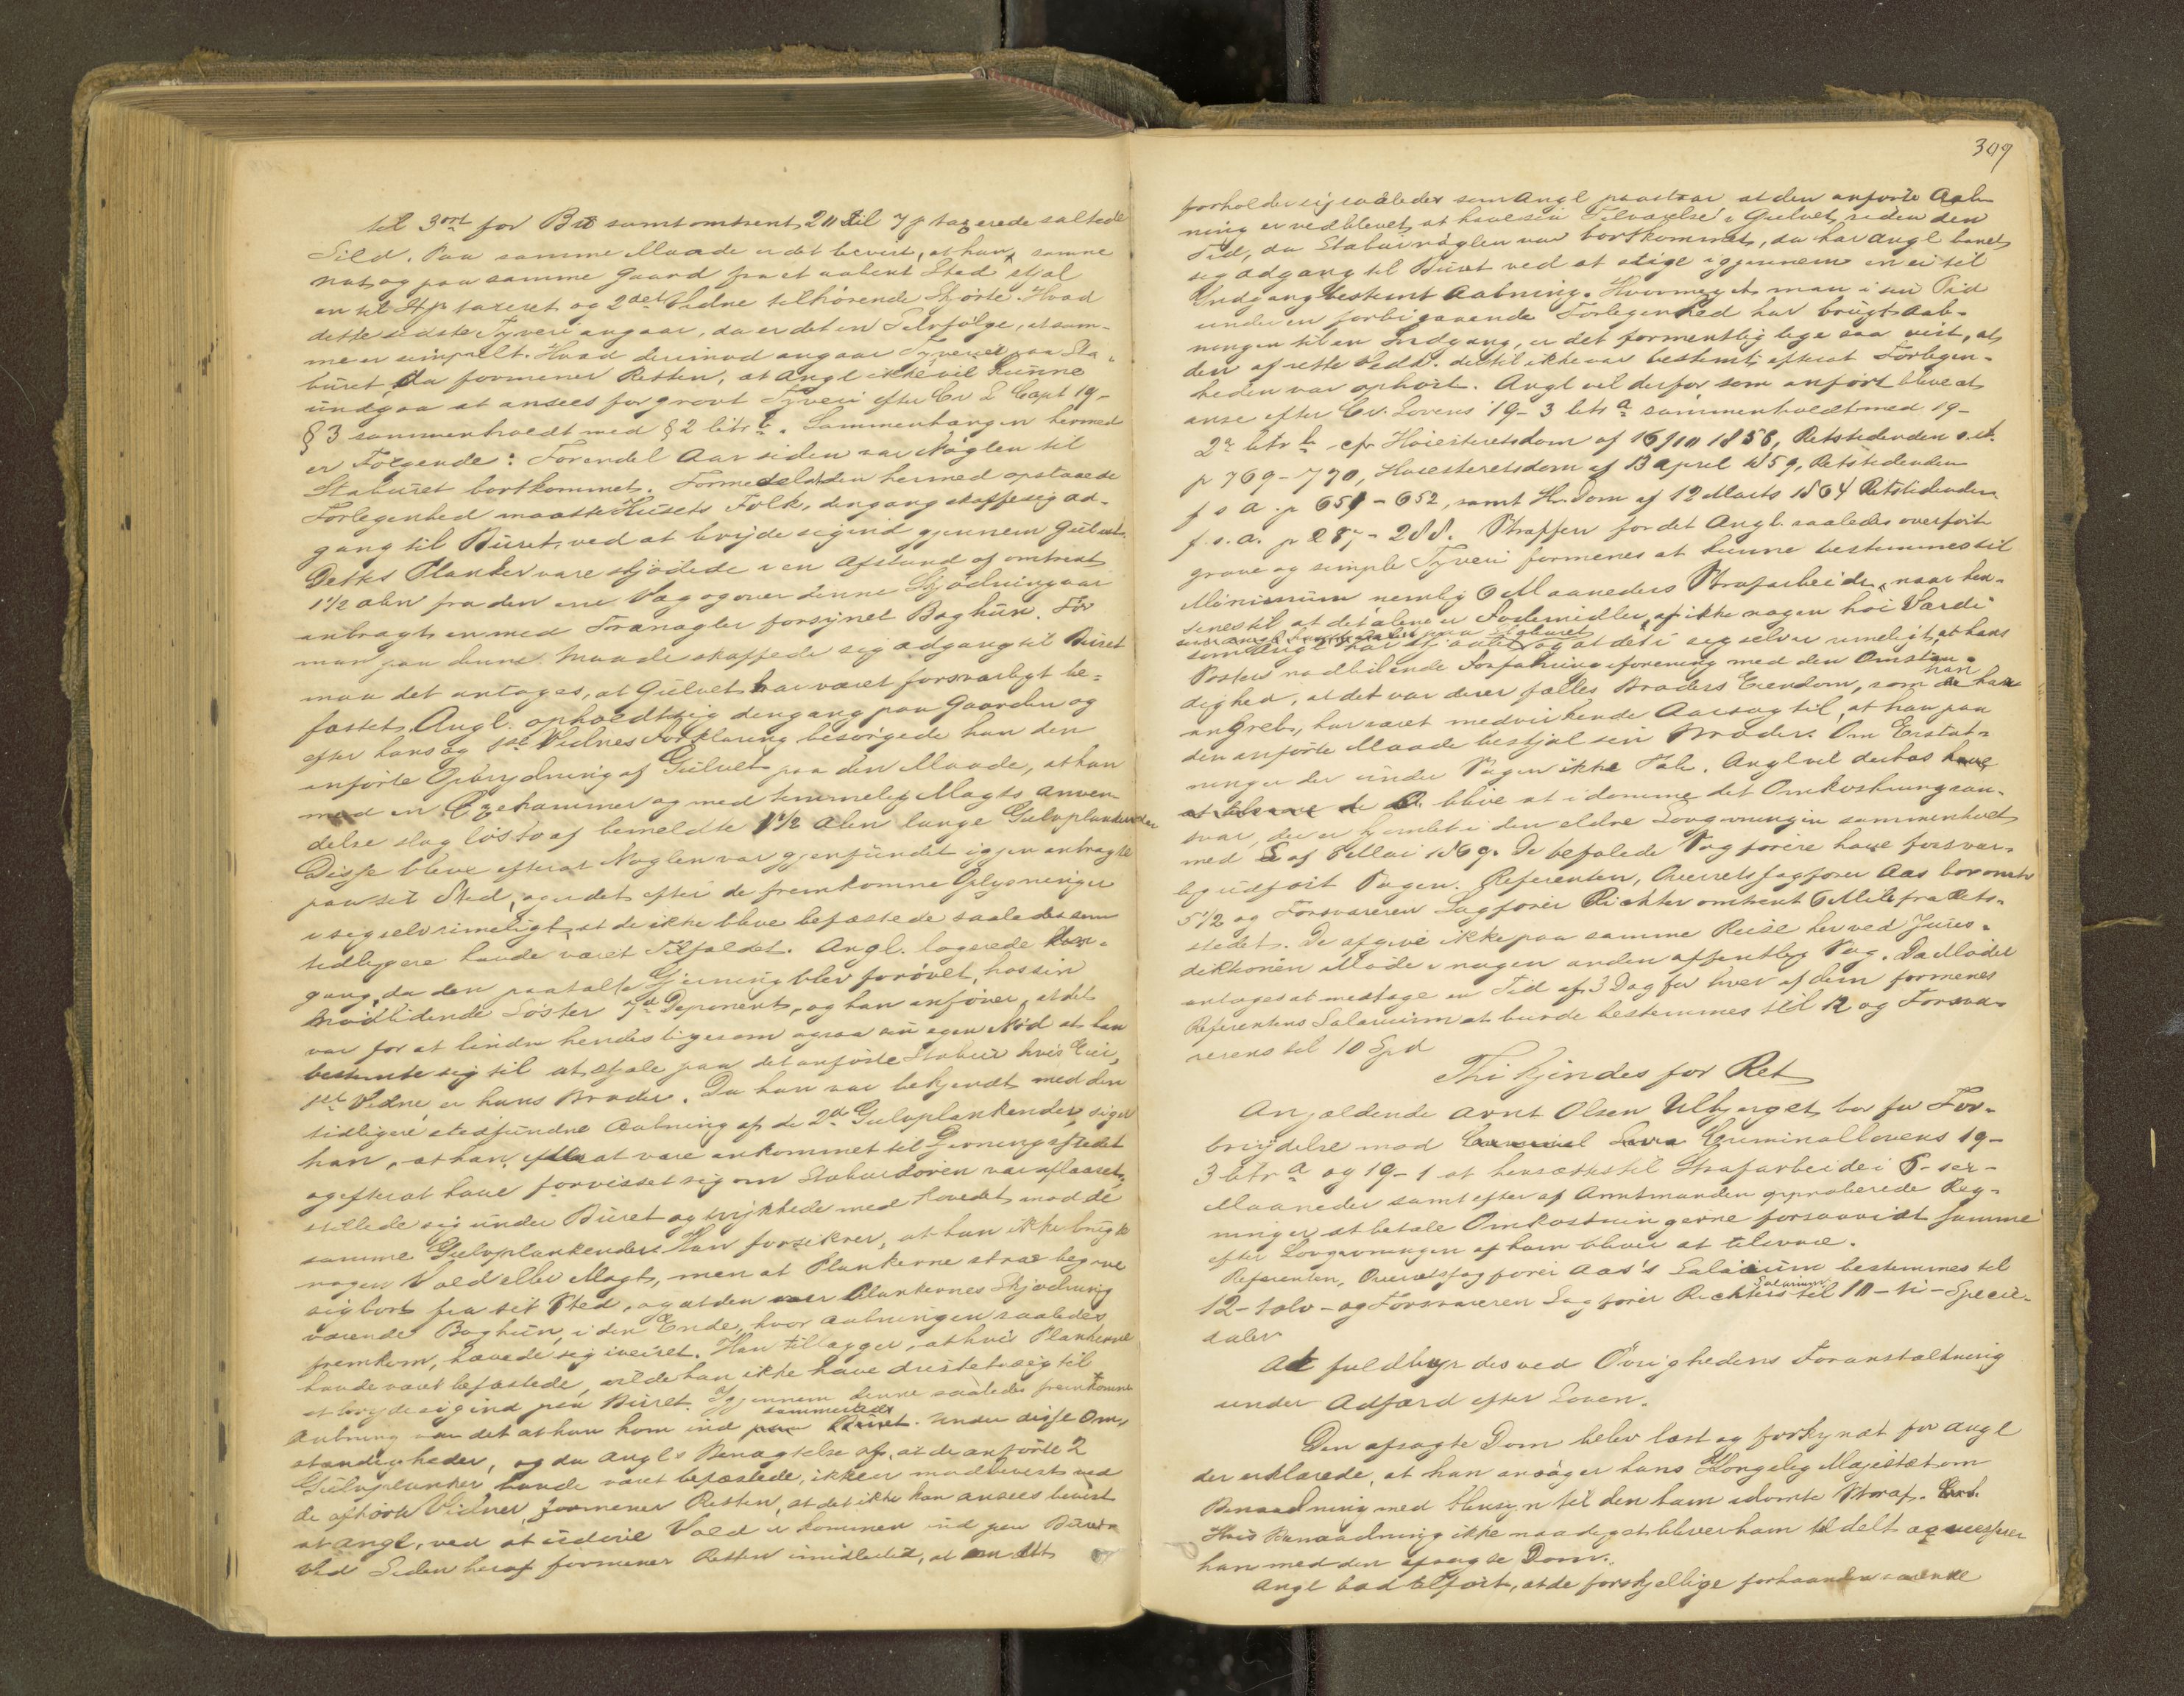 til 3 ort for Bü samt omtrent 20 til 7 p taxerede saltede
Sild. Paa samme Maade er det bevist, at han samme
nat og paa samme Gaard fra et aabent Sted stjal
en til 4 p taxeret og 2det Vidne tilhørende Skjorte. Hvad
dette sidste Tyveri angaar, da er det en Selvfølge, at sam-
me er simpelt. Hvad derimod angaar Tyveriet paa Sta-
buret, da formener Retten, at Angl ikke vil kunne
undgaa at ansees for grovt Tyveri efter Cr L Capt 19-
§ 3 sammenholdt med § 2 litr b. Sammenhængen hermed
er Følgende: For en del Aar siden var Nøglen til
Staburet bortkommet. Formedelst den hermed opstaaede
Forlegenhed maatte Husets Folk, dengang skaffe sig ad-
gang til Buret, ved at bryde sig ind gjennem Gulvet.
Dettes Planker vare skjødede i en Afstand af omtrent
1½ Alen fra den ene Væg og over denne Skjødning var
anbragt en med Trænagler forsynet Baghun. Før
man paa denne Maade skaffede sig adgang til Buret
maa det antages, at Gulvet har været forsvarligt be-
fæstet. Angl. opholdt sig dengang paa Gaarden og
efter hans og 1ste Vidnes Forklaring besørgede han den
anførte Opbrydning af Gulvet paa den Maade, at han
med en Øxehammer og med temmelig Magts Anven-
delse slog løs to af bemeldte 1½ Alen lange Gulvplankender
Disse bleve efterat Nøglen var gjenfundet igjen anbragte
paa sit Sted, og er det efter de fremkomne Oplysninger
i sig selv rimeligt, at de ikke bleve befæstede saaledes som
tidligere havde været Tilfældet. Angl. logerede den-
gang, da den paatalte Gjerning blev forøvet, hos sin
nødlidende Søster 7de Deponent, og han anfører, at det
var for at lindre hendes ligesom ogsaa sin egen Nød at han
bestemte sig til at stjæle paa det anførte Stabur hvis Eier,
1ste Vidne, er hans Broder. Da han var bekjendt med den
tidligere stedfundne Aabning af de 2de Gulvplankender, siger
han, at han, efterat være ankommet til Gjerningsstedet
og efterat have forvisset sig om Stabursdøren var aflaaset,
stillede sig under Buret og trykkede med Hovedet mod de
samme Gulvplankender. Han forsikrer, at han ikke brugte
nogen Vold eller Magt, men at Plankerne strax begave
sig bort fra sit Sted, og at den over Plankernes Skjødning
værende Baghun, i den Ende, hvor Aabningen saaledes
fremkom, hævede sig iveiret. Han tillægger, at hvis Plankerne
havde været befæstede, vilde han ikke have dristet sig til
at bryde sig ind paa Buret. Igjennem denne saaledes fremkomne
Aabning var det at han kom ind paa Buret sammesteds. Under disse Om-
stændigheder, og da Angl.s Benægtelse af, at de anførte 2
Gulvplanker havde været befæstede, ikke er modbevist ved
de afhørte Vidner, formener Retten, at det ikke kan ansees bevist
at Angl, ved at udøve Vold er kommen ind paa Buret
Ved Siden heraf formener Retten imidlertid, at om det
309
forholder sig saaledes som Angl paastaar at den anførte Aab-
ning er vedblevet at have sin Tilværelse i Gulvet siden den
Tid, da Stabursnøglen var bortkommet, da har Angl banet
sig Adgang til Buret ved at stige igjennem en ei til
Indgang bestemt Aabning. Hvormeget man i sin Tid
under en forbigaaende Forlegenhed har brugt Aab-
ningen til en Indgang, er det formentlig lige saa vist, at
den af rette Vedk. dertil ikke var bestemt, efterat Forlegen-
heden var ophørt. Angl vil derfor som anført blive at
anse efter Cr. Lovens 19-3 litr a sammenholdt med 19-
2 litr b cfr Høiesteretsdom af 16/10 1858, Retstidenden s.A.
p 769-770, Høiesteretsdom af 13 April 1859, Retstidenden
f s A. p 651-652, samt H. Dom af 12 Marts 1864 Retstidenden
f. s. A. p 287-288. Straffen for det Angl. saaledes overførte
grove og simple Tyveri formenes at kunne bestemmes til
Minimum nemlig 6 Maaneders Strafarbeide, naar hen-
sees til at det alene er Fødemidler, af ikke nogen høi Værdi
som Angl har stjaalet paa Staburet og at det i sig selv er rimeligt, at hans
Søsters nødlidende Forfatning i forening med den Omstæn-
dighed, at det var deres fælles Broders Eiendom, som han
angreb, har været medvirkende Aarsag til, at han paa
den anførte Maade bestjal sin Broder. Om Erstat-
ninger der under Sagen ikke Tale. Angl vil derhos
blive at idømme det Omkostningsan-
svar, der er hjemlet i den ældre Lovgivning in sammenholdt
med L af 8 Mai 1869. De befalede Sagførere have forsvar-
lig udført Sagen. Referenten, Overretssagfører Aas bor omtr
5½ og Forsvareren Sagfører Richter omtrent 6 Mile fra Rets-
stedet. De afgive ikke paa samme Reise her ved Juris-
diktionen Møde i nogen anden offentlig Sag. Da Mødet
antages at medtage en Tid af 3 Dag for hver af dem formenes
Referentens Salarium at burde bestemmes til 12 og Forsva-
rerens til 10 Spd
Thi kjendes for Ret
Angjældende Arnt Olsen Ulbjerget bør for For-
brydelse mod Criminallovens 19-
3 litr a og 19-1 at hensættes til Strafarbeide i 6-sex-
Maaneder samt efter af Amtmanden approberede Reg-
ninger at betale Omkostningerne forsaavidt samme
efter Lovgivningen af ham bliver at tilsvare.
Referenten, Overretssagfører Aas's Salarium bestemmes til
12-tolv- og Forsvareren Sagfører Richters Salarium til 10-ti-Specie-
daler
At fuldbyrdes ved Øvrighedens Foranstaltning
under Adfærd efter Loven.
Den afsagte Dom belev læst og forkyndt for Angl
der erklærede, at han ansøger hans Kongelig Majestæt om
Benaadning med Hensyn til den ham idømte Straf.
Hvis Benaadning ikke naadigst bliver ham tildelt acquiescerer
han med den afsagte Dom.
Angl bad tilført, at de forskjellige forhaandenværende